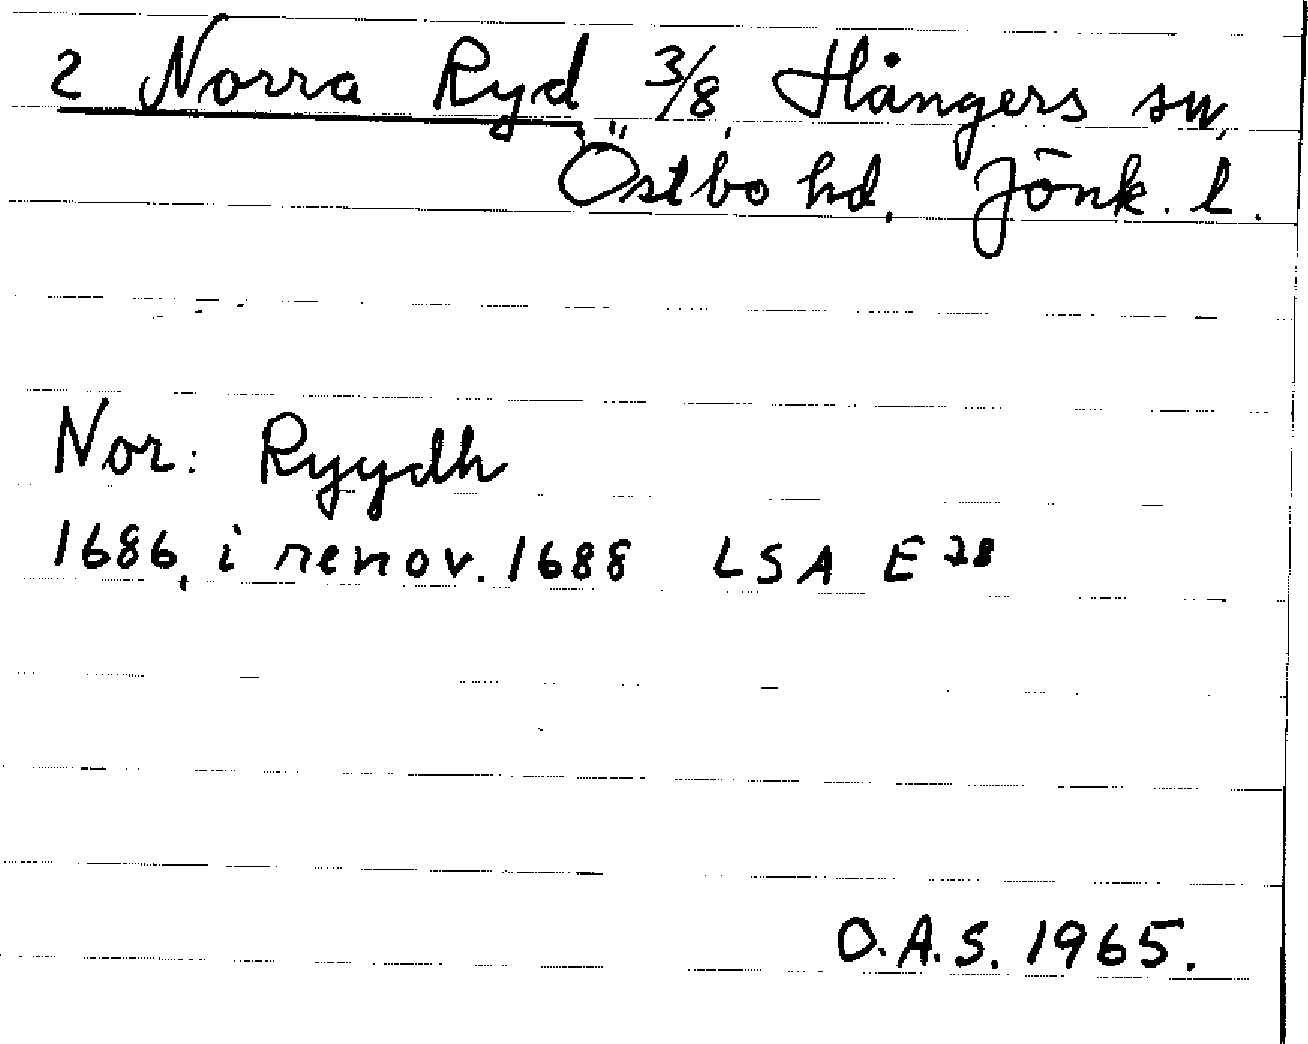 2 Norra Ryd 3/8, Hångers sn,
Östbo hd, Jönk. l.
Nor: Ryydh
1686, i renov. 1688 LSA E 28
O.A.S. 1965.